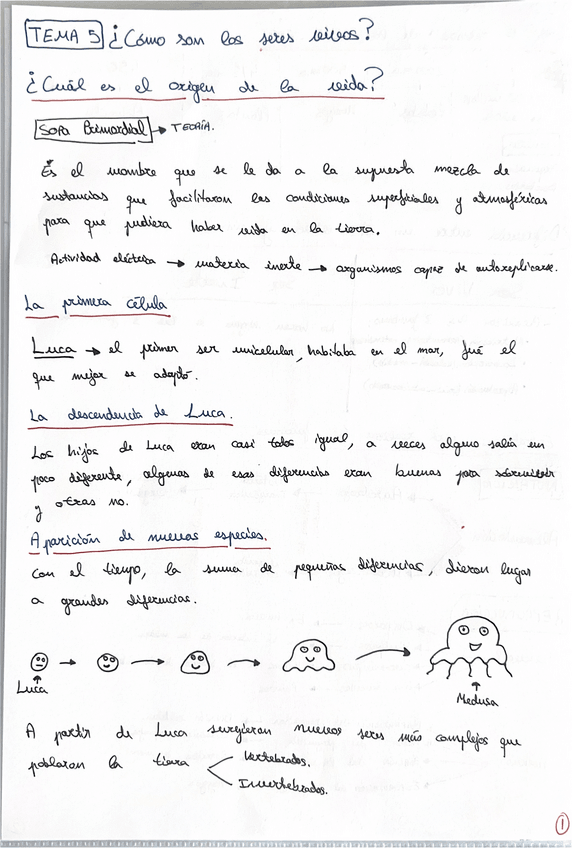 TEMA 5 ¿Cómo son los seres vivos?
¿Cuál es el origen de la vida?
Sopa Primordial → TEORÍA.
Es el nombre que se le da a la supuesta mezcla de
sustancias que facilitaron las condiciones superficiales y atmosféricas
para que pudiera haber vida en la tierra.
Actividad eléctrica → materia inerte → organismos capaz de autoreplicarse.
La primera célula
Luca → el primer ser unicelular, habitaba en el mar, fué el
que mejor se adaptó.
La descendencia de Luca.
Los hijos de Luca eran casi todos igual, a veces alguno salía un
poco diferente, algunas de esas diferencias eran buenas para sobrevivir
y otras no.
Aparición de nuevas especies.
Con el tiempo, la suma de pequeñas diferencias, dieron lugar
a grandes diferencias.
Luca
Medusa
A partir de Luca surgieran nuevos seres más complejos que
poblaron la tierra
Vertebrados.
Invertebrados.
1